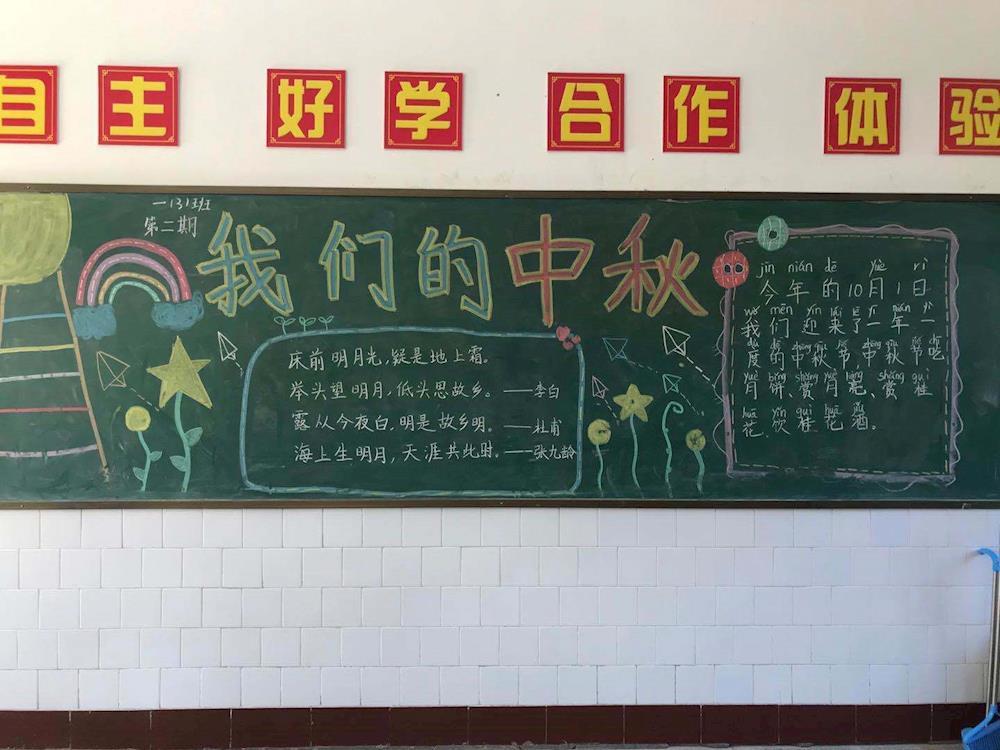 自主 好学 合作 体验
一(3)班
第二期
我们的中秋
床前明月光，疑是地上霜。
举头望明月，低头思故乡。——李白
露从今夜白，明是故乡明。——杜甫
海上生明月，天涯共此时。——张九龄
jīn nián dē yuè rì
今年的10月1日
wǒ mēn yín lái lē yī nián yī
我们迎来了一年一
dù dē zhōng qiū jié zhōng qiū jié chī
度的中秋节,中秋节吃
yuè bǐng shǎng yuè liàng shǎng guì
月饼、赏月亮、赏桂
huā yǐn guì huā jiǔ
花、饮桂花酒。